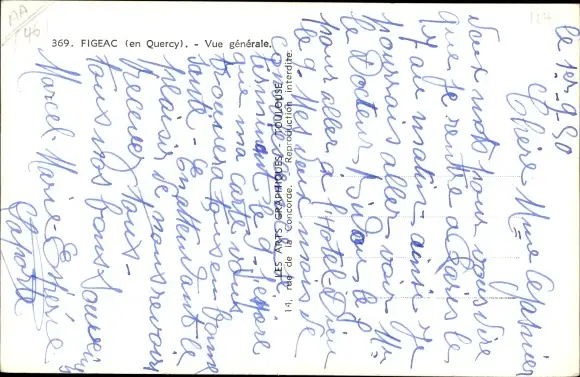 AA
40
369. FIGEAC (en Quercy). - Vue générale.
LES ARTS GRAPHIQUES - TOULOUSE
14, rue de la Concorde. - Reproduction interdite.
le 1er-9-50
Chère Mme
deux mots pour vous dire
que je rentre à Paris le
7 au matin - ainsi je
pourrais aller voir Mr
le Docteur, le 8
pour aller à l'Hotel-Dieu
le 9. Mes deux mois de
se
terminant le 9. J'espère
que ma carte vous
trouvera tous en bonne
santé - En attendant le
plaisir de nous revoir
recevez tous -
tous nos bons souvenirs
Marcel - Marie - Estérie